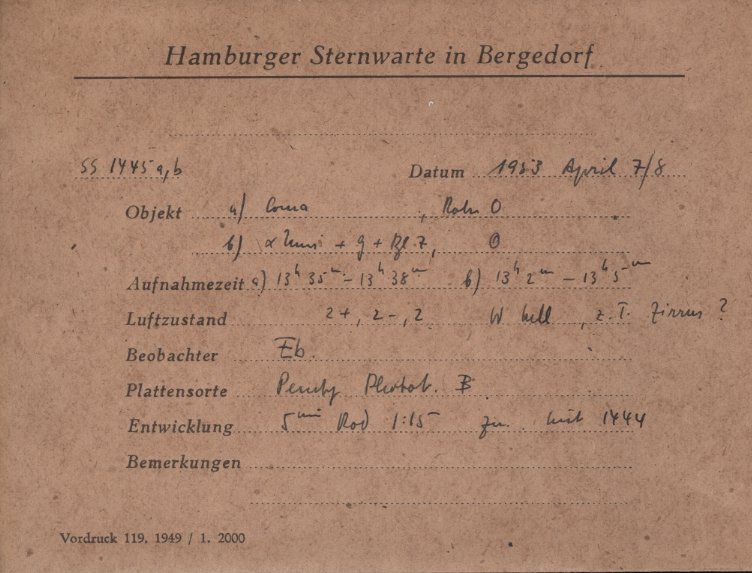 Hamburger Sternwarte in Bergedorf
SS 1445 a, b Datum 1953 April 7/8
Objekt a) Coma , Rohr O
b) α + g + , O
Aufnahmezeit a) 13h 35m – 13h 38m b) 13h 2m – 13h 5m
Luftzustand 2+, 2–, 2 W hell , z. T. Zirren ?
Beobachter Eb.
Plattensorte Perutz Photot. B
Entwicklung 5min Rod 1:15 zus. mit 1444
Bemerkungen
Vordruck 119. 1949 / 1. 2000